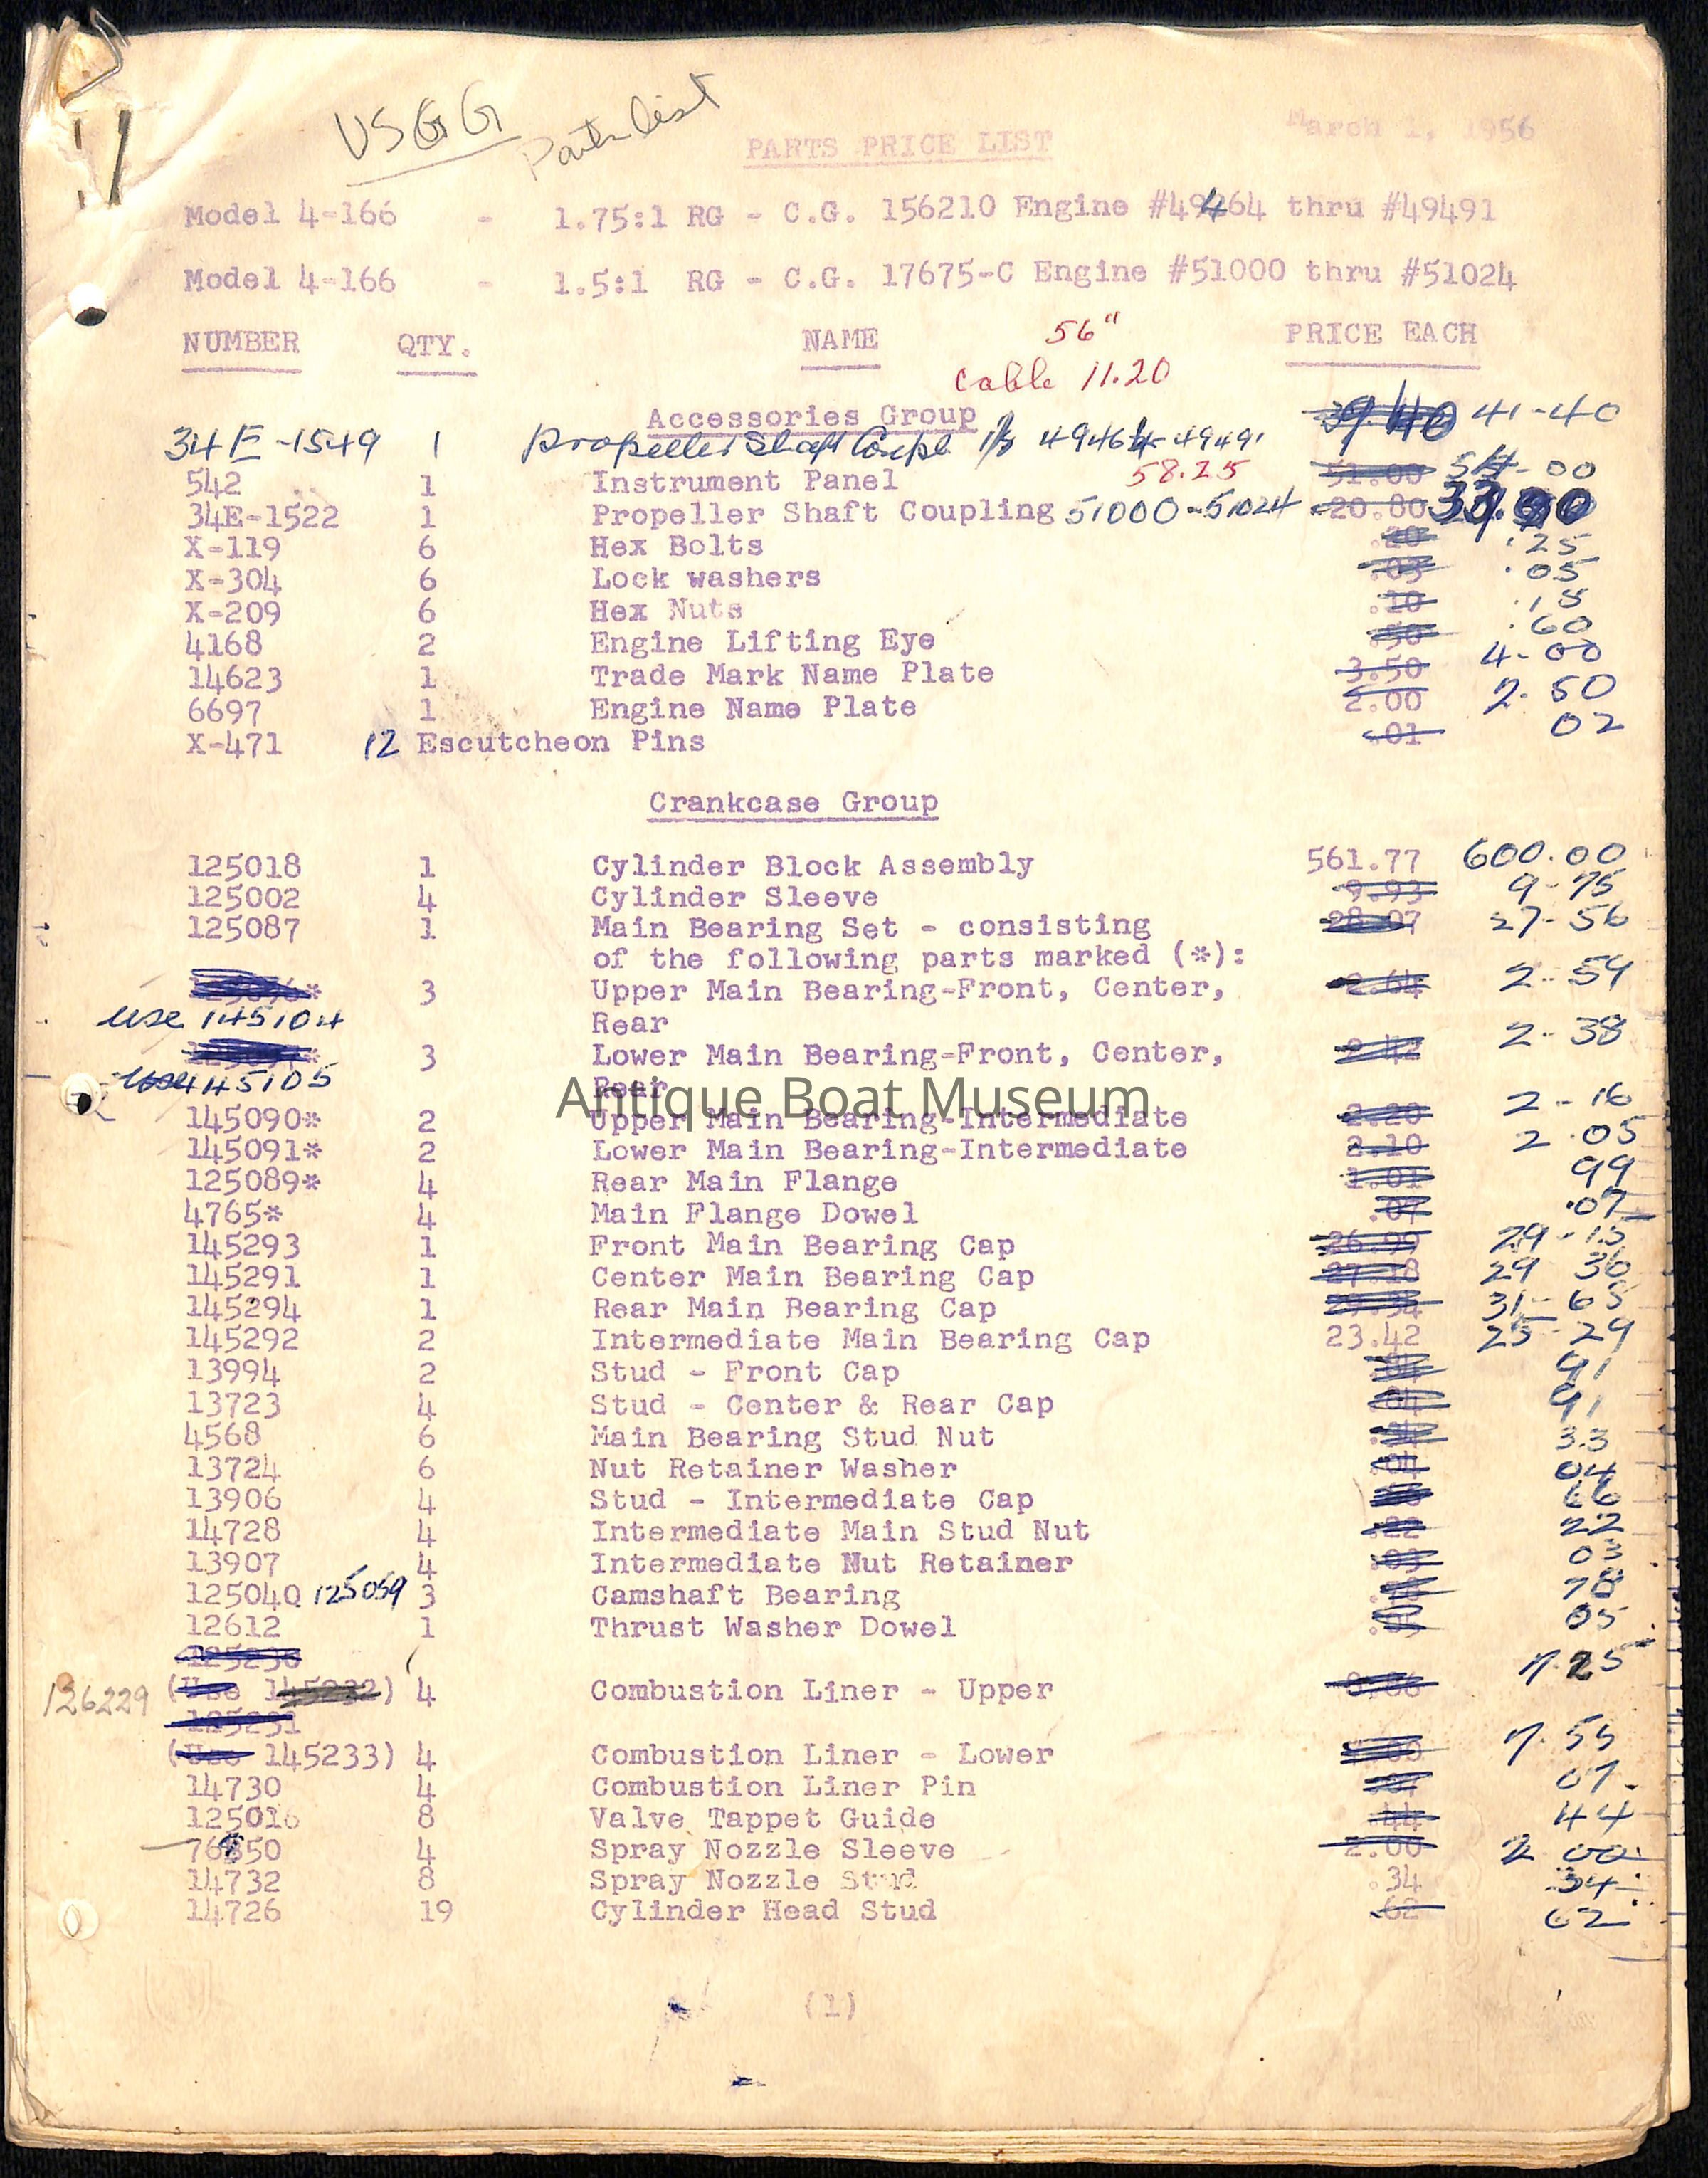 USGG Parts List
March 1, 1956
PARTS PRICE LIST
Model 4-166 - 1.75:1 RG - C.G. 156210 Engine #49464 thru #49491
Model 4-166 - 1.5:1 RG - C.G. 17675-C Engine #51000 thru #51024
NUMBER QTY. NAME 56" PRICE EACH
Cable 11.20
Accessories Group 39.40 41-40
34E-1549 1 Propeller Shaft 49464-49491
542 1 Instrument Panel 58.25 51.00 54-00
34E-1522 1 Propeller Shaft Coupling 51000-51024 20.80
X-119 6 Hex Bolts .20 .25
X-304 6 Lock washers .03 .05
X-209 6 Hex Nuts .10 .15
4168 2 Engine Lifting Eye .50 .60
14623 1 Trade Mark Name Plate 3.50 4-00
6697 1 Engine Name Plate 2.00 2.50
X-471 12 Escutcheon Pins .01 02
Crankcase Group
125018 1 Cylinder Block Assembly 561.77 600.00
125002 4 Cylinder Sleeve 9.93 9-75
125087 1 Main Bearing Set - consisting 28.07 27-56
of the following parts marked (*):
* 3 Upper Main Bearing-Front, Center, 2.64 2-59
use 145104 Rear
* 3 Lower Main Bearing-Front, Center, 2.42 2-38
use 145105 Rear
Antique Boat Museum
145090* 2 Upper Main Bearing-Intermediate 2.20 2-16
145091* 2 Lower Main Bearing-Intermediate 2.10 2.05
125089* 4 Rear Main Flange 1.01 99
4765* 4 Main Flange Dowel .07
145293 1 Front Main Bearing Cap 26.99 29-15
145291 1 Center Main Bearing Cap 27.18 29 36
145294 1 Rear Main Bearing Cap 31-65
145292 2 Intermediate Main Bearing Cap 23.42 25-29
13994 2 Stud - Front Cap 91
13723 4 Stud - Center & Rear Cap 91
4568 6 Main Bearing Stud Nut 33
13724 6 Nut Retainer Washer .04 04
13906 4 Stud - Intermediate Cap 66
14728 4 Intermediate Main Stud Nut .22 22
13907 4 Intermediate Nut Retainer .03 03
125040 125059 3 Camshaft Bearing 78
12612 1 Thrust Washer Dowel 05
125230
126229 (Use 145232) 4 Combustion Liner - Upper 7.25
125231
(Use 145233) 4 Combustion Liner - Lower 7.55
14730 4 Combustion Liner Pin .07 07
125016 8 Valve Tappet Guide .44 44
76850 4 Spray Nozzle Sleeve 2.00 2 00
14732 8 Spray Nozzle Stud .34 34
14726 19 Cylinder Head Stud .62 62
(1)